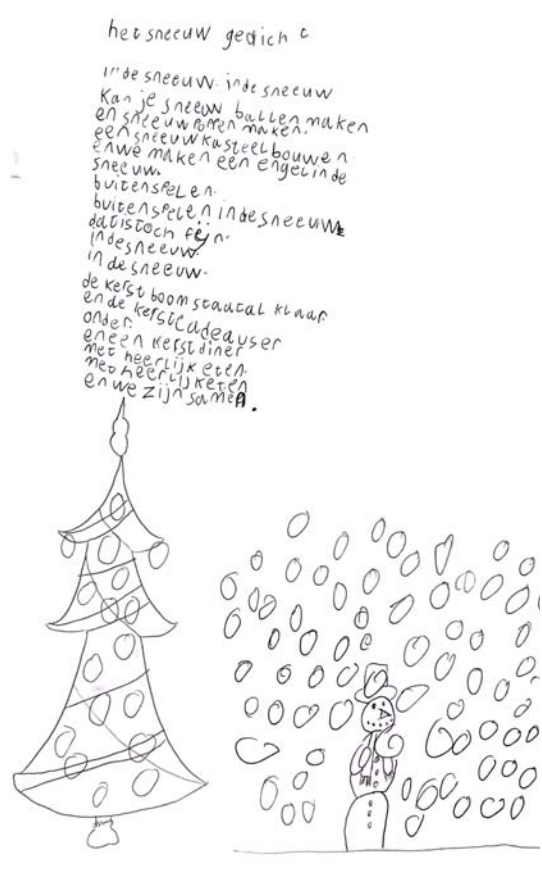 het sneeuw gedicht
in de sneeuw. in de sneeuw
kan je sneeuw ballen maken
en sneeuwpoppen maken.
een sneeuwkasteel bouwen
en we maken een engel in de
sneeuw.
buitenspelen.
buitenspelen in de sneeuw
dat is toch fijn.
in de sneeuw
in de sneeuw.
de kerst boom staat al klaar
en de kerst cadeaus er
onder.
en een kerstdiner
met heerlijk eten.
met heerlijk eten
en we zijn samen.